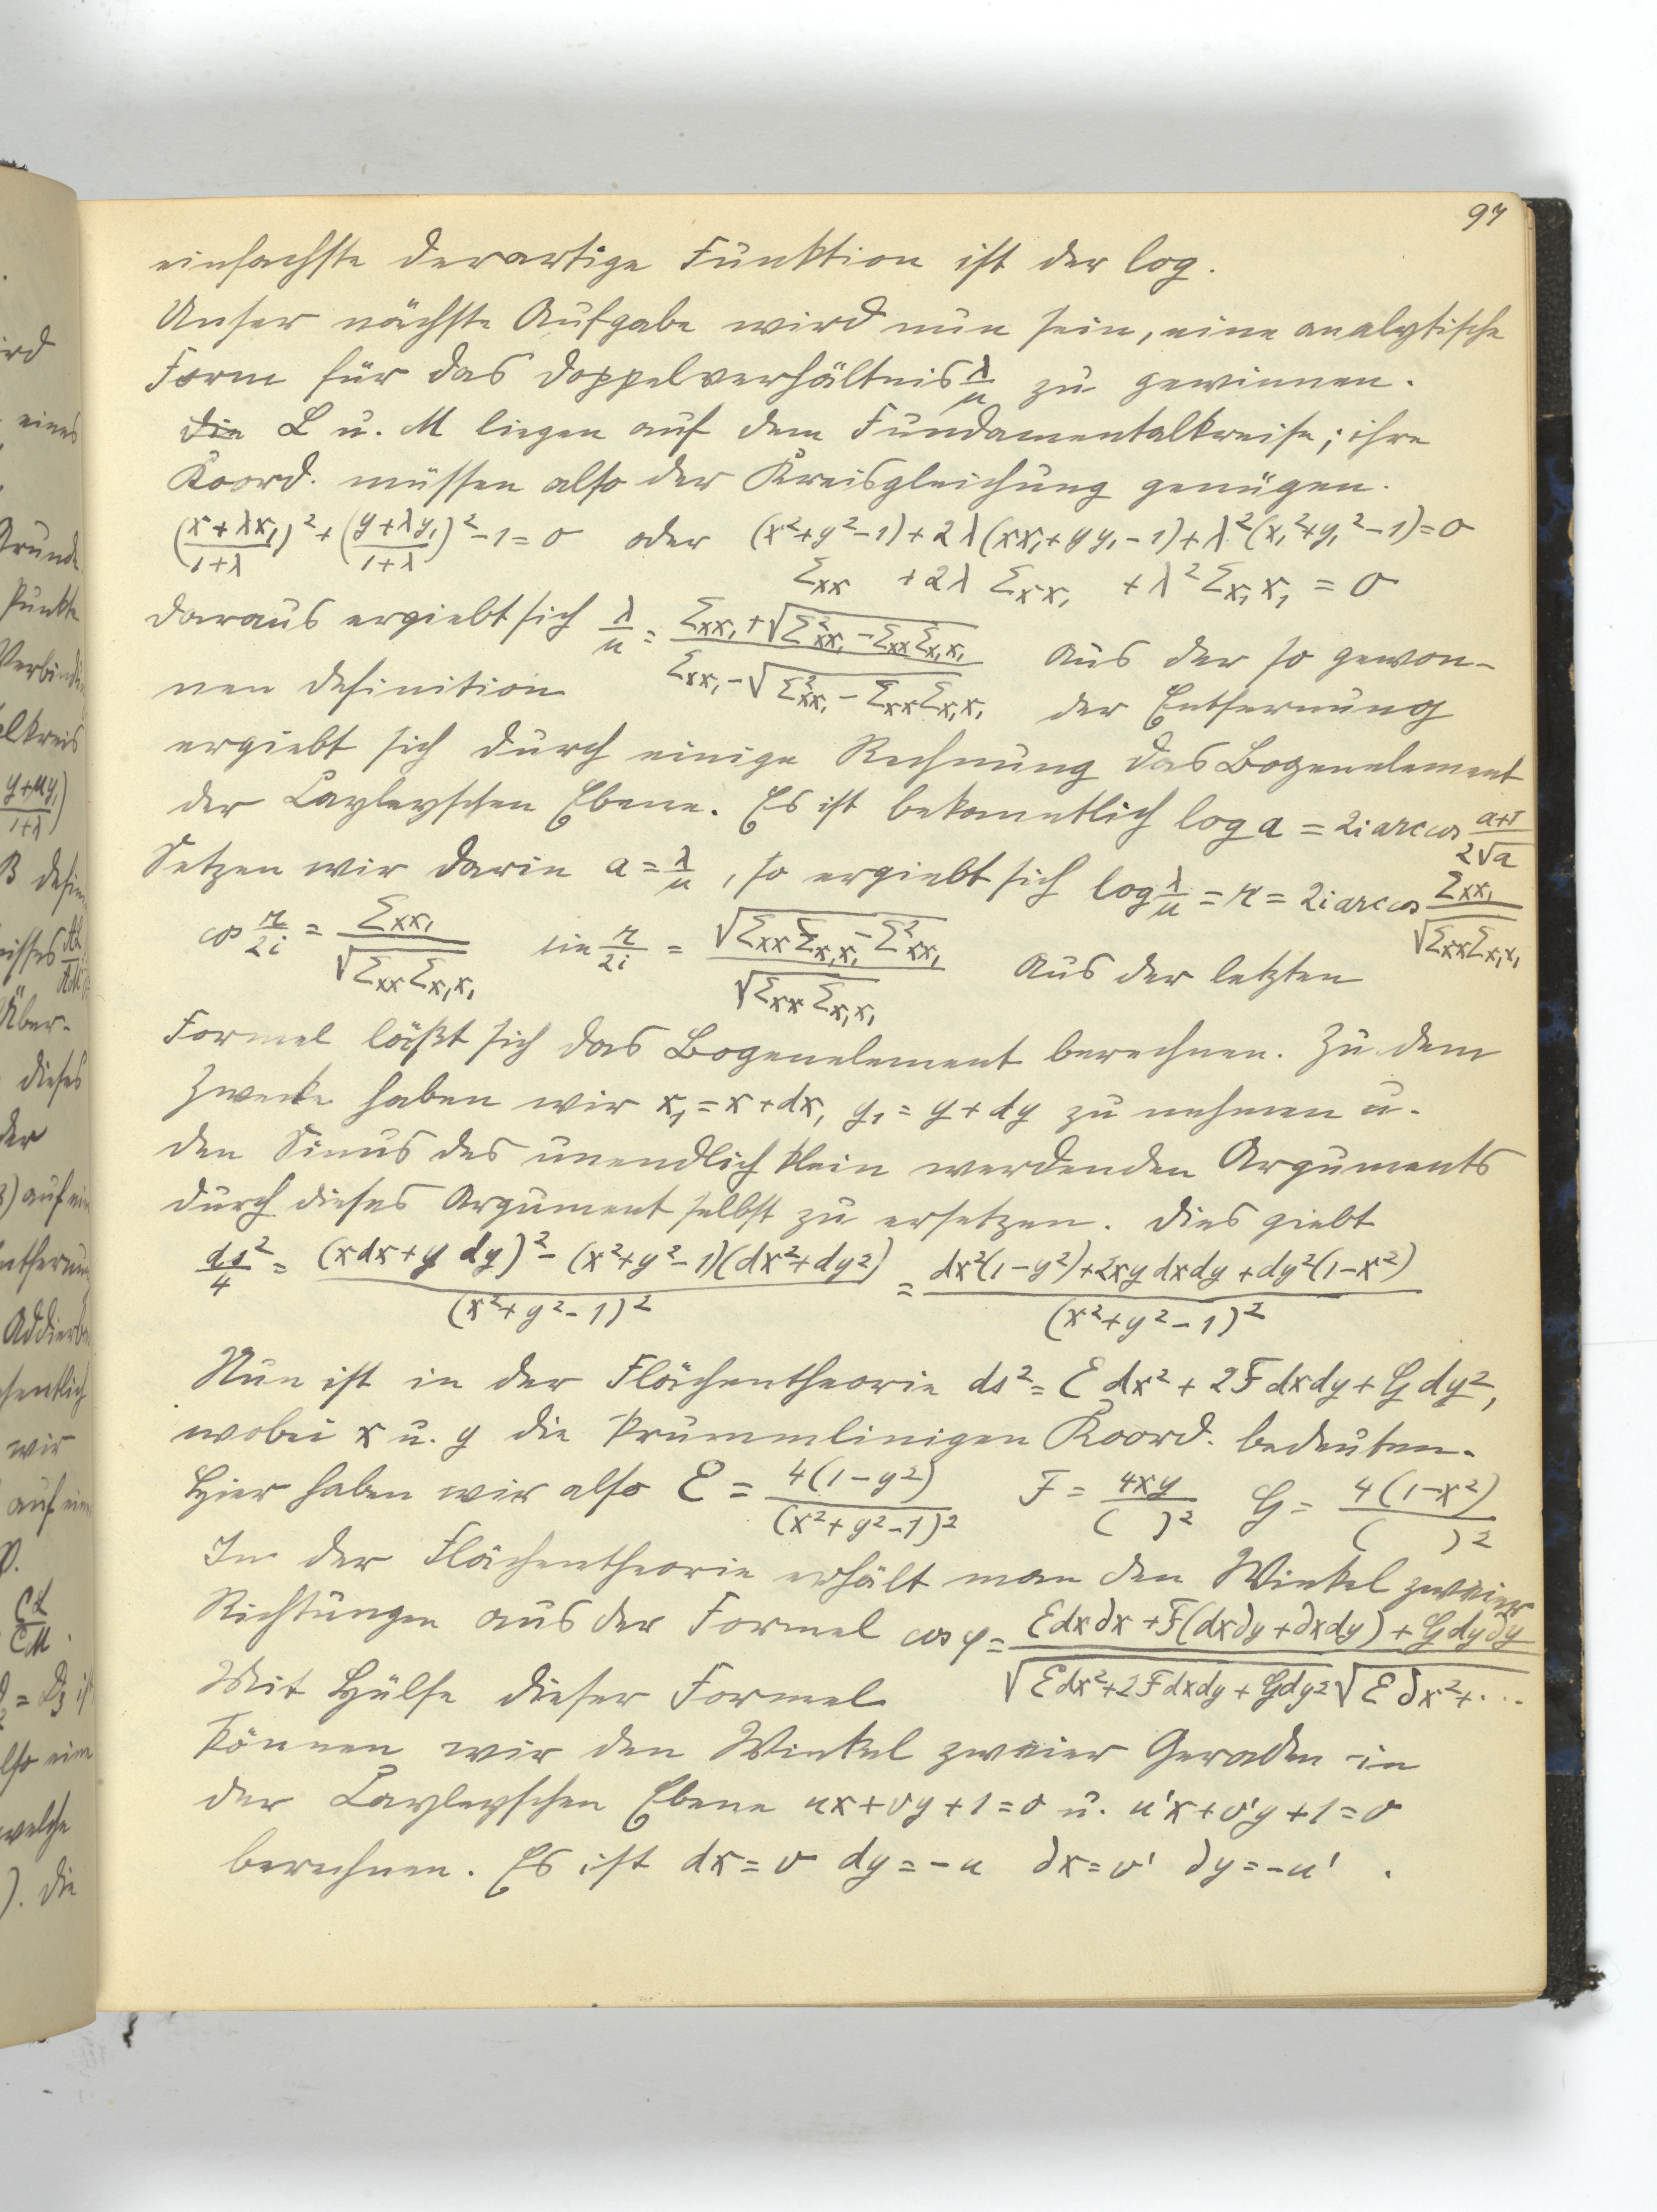 97
einfachste derartige Funktion ist der log.
Unser nächste Aufgabe wird nun sein, eine analytische
Form für das Doppelverhältnis λ/μ zu gewinnen.
Die L u. M liegen auf dem Fundamentalkreise; ihre
Koord. müssen also der Kreisgleichung genügen.
((x+λx₁)/(1+λ))² + ((y+λy₁)/(1+λ))² - 1 = 0 oder (x²+y²-1)+2λ(xx₁+yy₁-1)+λ²(x₁²+y₁²-1)=0
Σxx + 2λ Σxx₁ + λ² Σx₁x₁ = 0
Daraus ergiebt sich λ/μ = (Σxx₁+√(Σ²xx₁ - Σxx Σx₁x₁))/(Σxx₁-√(Σ²xx₁ - Σxx Σx₁x₁)) Aus der so gewon-
nen Definition der Entfernung
ergiebt sich durch einige Rechnung das Bogenelement
der Cayleyschen Ebene. Es ist bekanntlich log a = 2i arc cos (a+1)/(2√a)
Setzen wir darin a = λ/μ, so ergiebt sich log λ/μ = r = 2i arc cos Σxx₁/√(Σxx Σx₁x₁)
cos r/2i = Σxx₁/√(Σxx Σx₁x₁) sin r/2i = √(Σxx Σx₁x₁ - Σ²xx₁)/√(Σxx Σx₁x₁) Aus der letzten
Formel läßt sich das Bogenelement berechnen. Zu dem
Zwecke haben wir x₁ = x + dx, y₁ = y + dy zu nehmen u.
den Sinus des unendlich klein werdenden Arguments
durch dieses Argument selbst zu ersetzen. Dies giebt
ds²/4 = ((xdx+y dy)² - (x²+y²-1)(dx²+dy²))/(x²+y²-1)² = (dx²(1-y²)+2xy dxdy+dy²(1-x²))/(x²+y²-1)²
Nun ist in der Flächentheorie ds² = E dx² + 2F dxdy + G dy²,
wobei x u. y die krummlinigen Koord. bedeuten.
Hier haben wir also E = 4(1-y²)/(x²+y²-1)² F = 4xy/( )² G = 4(1-x²)/( )²
In der Flächentheorie erhält man den Winkel zweier
Richtungen aus der Formel cos φ = (E dx∂x + F(dx∂y+∂xdy) + G dy∂y)/(√(E dx²+2F dxdy+G dy²) √(E ∂x²+...
Mit Hülfe dieser Formel
können wir den Winkel zweier Geraden in
der Cayleyschen Ebene ux+vy+1=0 u. u'x+v'y+1=0
berechnen. Es ist dx=v dy=-u ∂x=v' ∂y=-u' .